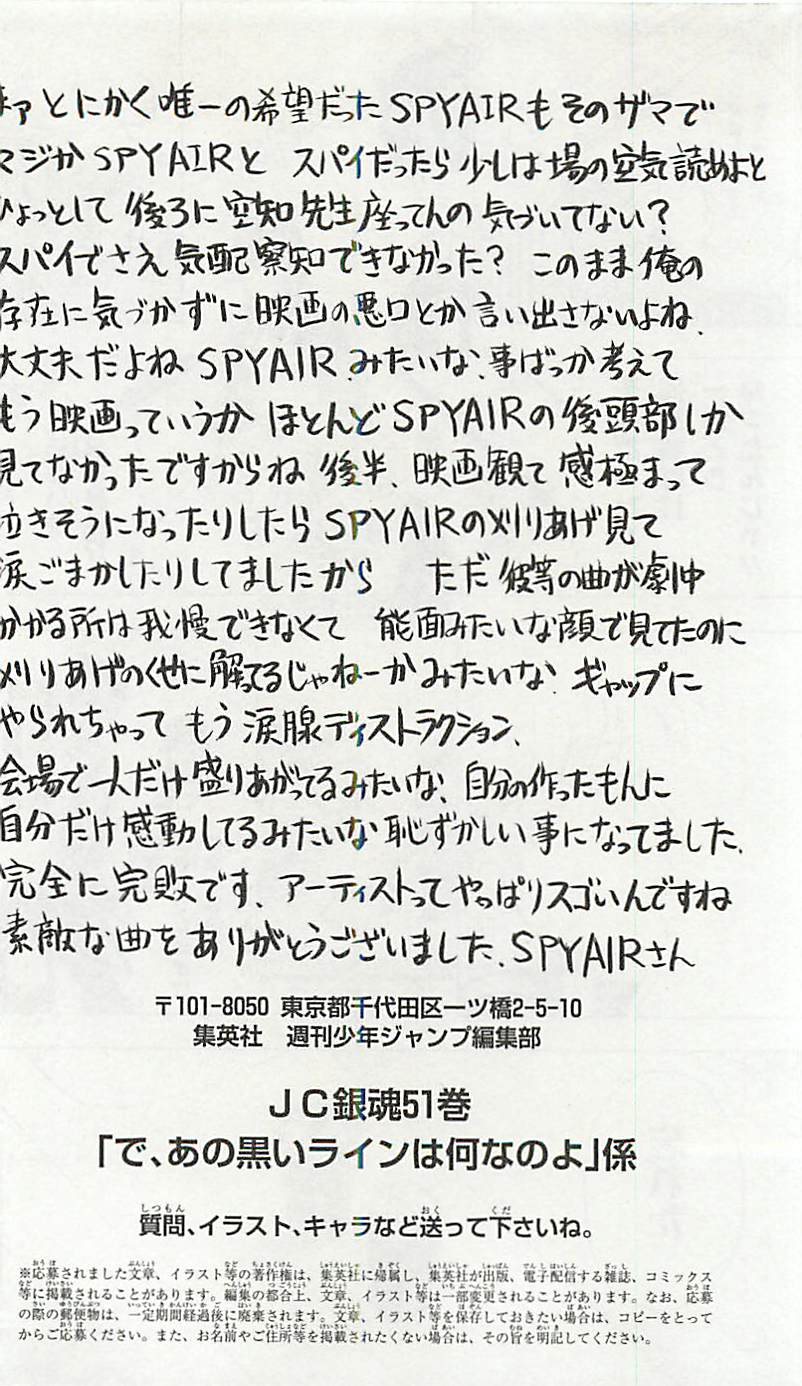 まァとにかく唯一の希望だったSPYAIRもそのザマで
マジかSPYAIRと スパイだったら少しは場の空気読めよと
ひょっとして 後ろに空知先生座ってんの気づいてない?
スパイでさえ気配察知できなかった? このまま俺の
存在に気づかずに映画の悪口とか言い出さないよね、
大丈夫だよねSPYAIR、みたいな、事ばっか考えて
もう映画っていうかほとんどSPYAIRの後頭部しか
見てなかったですからね 後半、映画観て感極まって
泣きそうになったりしたらSPYAIRの刈りあげ見て
涙ごまかしたりしてましたから ただ彼等の曲が劇中
かかる所は我慢できなくて 能面みたいな顔で見てたのに
刈りあげのくせに解ってるじゃねーかみたいな、ギャップに
やられちゃって もう涙腺ディストラクション、
会場で一人だけ盛りあがってるみたいな、自分の作ったもんに
自分だけ感動してるみたいな恥ずかしい事になってました、
完全に完敗です、アーティストってやっぱりスゴいんですね
素敵な曲をありがとうございました、SPYAIRさん
〒101-8050 東京都千代田区一ツ橋2-5-10
集英社 週刊少年ジャンプ編集部
JC銀魂51巻
「で、あの黒いラインは何なのよ」係
質問、イラスト、キャラなど送って下さいね。
※応募されました文章、イラスト等の著作権は、集英社に帰属し、集英社が出版、電子配信する雑誌、コミックス
等に掲載されることがあります。編集の都合上、文章、イラスト等は一部変更されることがあります。なお、応募
の際の郵便物は、一定期間経過後に廃棄されます。文章、イラスト等を保存しておきたい場合は、コピーをとって
からご応募ください。また、お名前やご住所等を掲載されたくない場合は、その旨を明記してください。